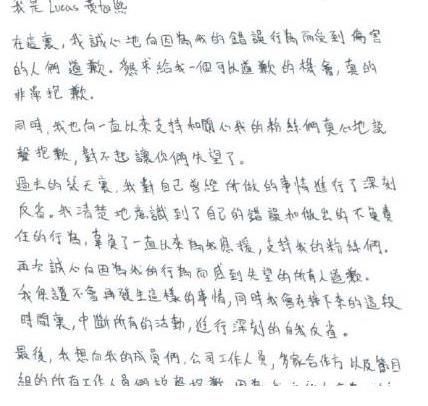 我是 Lucas 黃旭熙
在這裏,我誠心地向因為我的錯誤行為而受到傷害
的人們道歉。懇求給我一個可以道歉的機會,真的
非常抱歉。
同時,我也向一直以來支持和關心我的粉絲們真心地說
聲抱歉,對不起讓你們失望了。
過去的幾天裏,我對自己曾經所做的事情進行了深刻
反省。我清楚地意識到了自己的錯誤和做出的不負責
任的行為,辜負了一直以來為我應援,支持我的粉絲們。
再次誠心向因為我的行為而感到失望的所有人道歉。
我保證不會再發生這樣的事情,同時我會在接下來的這段
時間裏,中斷所有的活動,進行深刻的自我反省。
最後,我想向我的成員們,公司工作人員,多家合作方以及節目
組的所有工作人員們說聲抱歉,因為